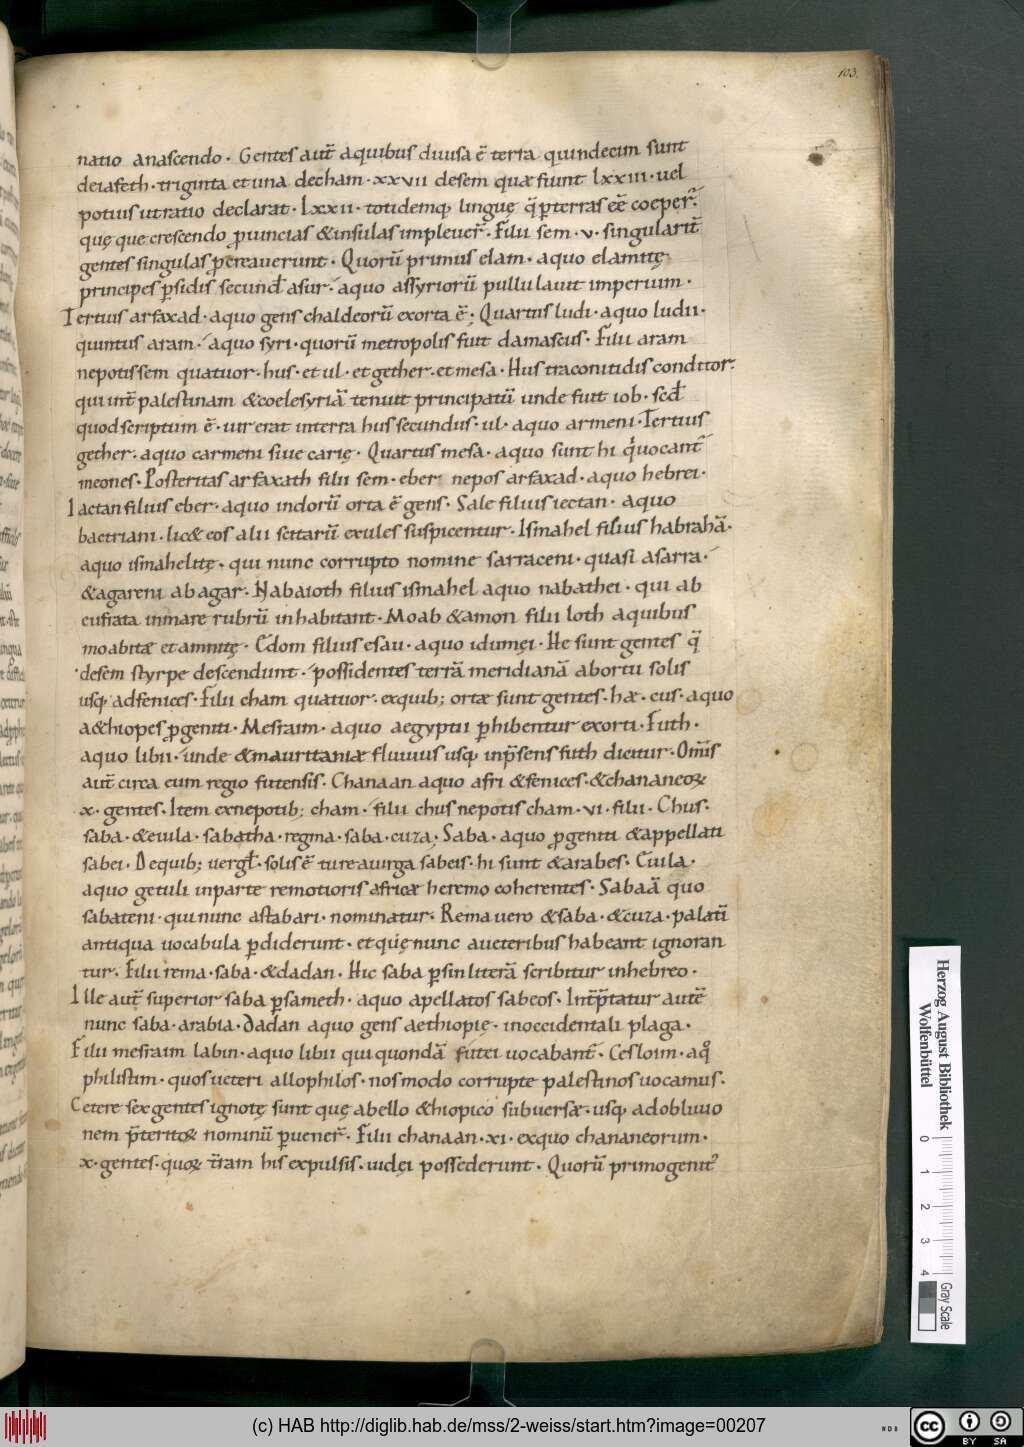 103.
natio anascendo · Gentes aut̄ aquibus diuisa ē terra quindecim sunt
deiafeth · triginta et una decham · xxvii desem quæ fiunt lxxiii · uel
potius ut ratio declarat · lxxii · totidemq; linguę q̄ ꝑterras eē coeper̄ ·
quę que crescendo ꝓuincias &insulas impleuer̄ · Filii sem · v · singularit̄
gentes singulas ꝓcreauerunt · Quorū primus elam · aquo elamitę
principes ꝑsidis secund̄ asur · aquo assyriorū pullulauit imperium ·
Tertius arfaxad · aquo gens chaldeorū exorta ē ; Quartus ludi · aquo ludii ·
quintus aram · aquo syri · quorū metropolis fuit damascus · Filii aram
nepotis sem quatuor · hus · et ul · et gether · et mesa · Hus traconitidis conditor ·
qui int̄ palestinam &coelesyriā tenuit principatū unde fuit iob · scd̄
quod scriptum ē · uir erat interra hus secundus · ul · aquo armeni · Tertius
gether · aquo carmeni siue carię · Quartus mesa · aquo sunt hi q' uocant̄
meones · Posteritas arfaxath filii sem · eber nepos arfaxad · aquo hebrei ·
Iactan filius eber · aquo indorū orta ē gens · Sale filius iectan · aquo
bactriani · lic& eos alii scitarū exules suspicentur · Ismahel filius habrahā ·
aquo ismahelitę · qui nunc corrupto nomine sarraceni · quasi asarra ·
&agareni ab agar · Nabaioth filius ismahel aquo nabathei · qui ab
eufrata inmare rubrū inhabitant · Moab &amon filii loth aquibus
moabitæ et amnitę · Edom filius esau · aquo idumęi · He sunt gentes q̄
desem styrpe descendunt · possidentes terrā meridianā abortu solis
usq; adfenices · Filii cham quatuor · exquib; ortæ sunt gentes · hæ · cus · aquo
a&hiopes ꝓgeniti · Mesraim · aquo aegyptii ꝑhibentur exorti · Futh ·
aquo libii · unde &mauritaniæ fluuius usq; inp̄sens futh dicitur · Omīs
aut̄ circa eum regio futensis · Chanaan aquo afri &fenices · &chananeoꝝ
x · gentes · Item exnepotib; cham · filii chus nepotis cham · vi · filii · Chus ·
saba · &euila · sabatha · regma · saba · cuza ; Saba · aquo ꝓgeniti &appellati
sabei · Dequib; uergł · solis ē turea uirga sabeis · hi sunt &arabes · Euila ·
aquo getuli inparte remotioris africæ heremo coherentes · Sabaā quo
sabateni · qui nunc astabari · nominatur · Rema uero &saba · &cuza · palatī
antiqua uocabula ꝑdiderunt · et quę nunc aueteribus habeant ignoran
tur · Filii rema · saba · &dadan · Hic saba ꝑsin literā scribitur inhebreo ·
Ille aut̄ superior saba ꝑsameth · aquo apellatos sabeos · Int̄p̄tatur autē
nunc saba · arabia · Dadan aquo gens aethiopię · inoccidentali plaga ·
Filii mesraim labin · aquo libii qui quondā futei uocabant̄ · Cesloim · aq°
philistim · quos ueteri allophilos · nos modo corrupte palestinos uocamus ·
Cetere sex gentes ignotę sunt quę abello &hiopico subuersæ · usq; adobliuio
nem p̄teritoꝝ nominū ꝑuener̄ · Filii chanaan · xi · exquo chananeorum ·
x · gentes · quoꝝ t̄ram his expulsis · iudęi possederunt · Quorū primogenit'
Herzog August Bibliothek
Wolfenbüttel
0 1 2 3 4
Gray Scale
(c) HAB http://diglib.hab.de/mss/2-weiss/start.htm?image=00207
cc BY SA